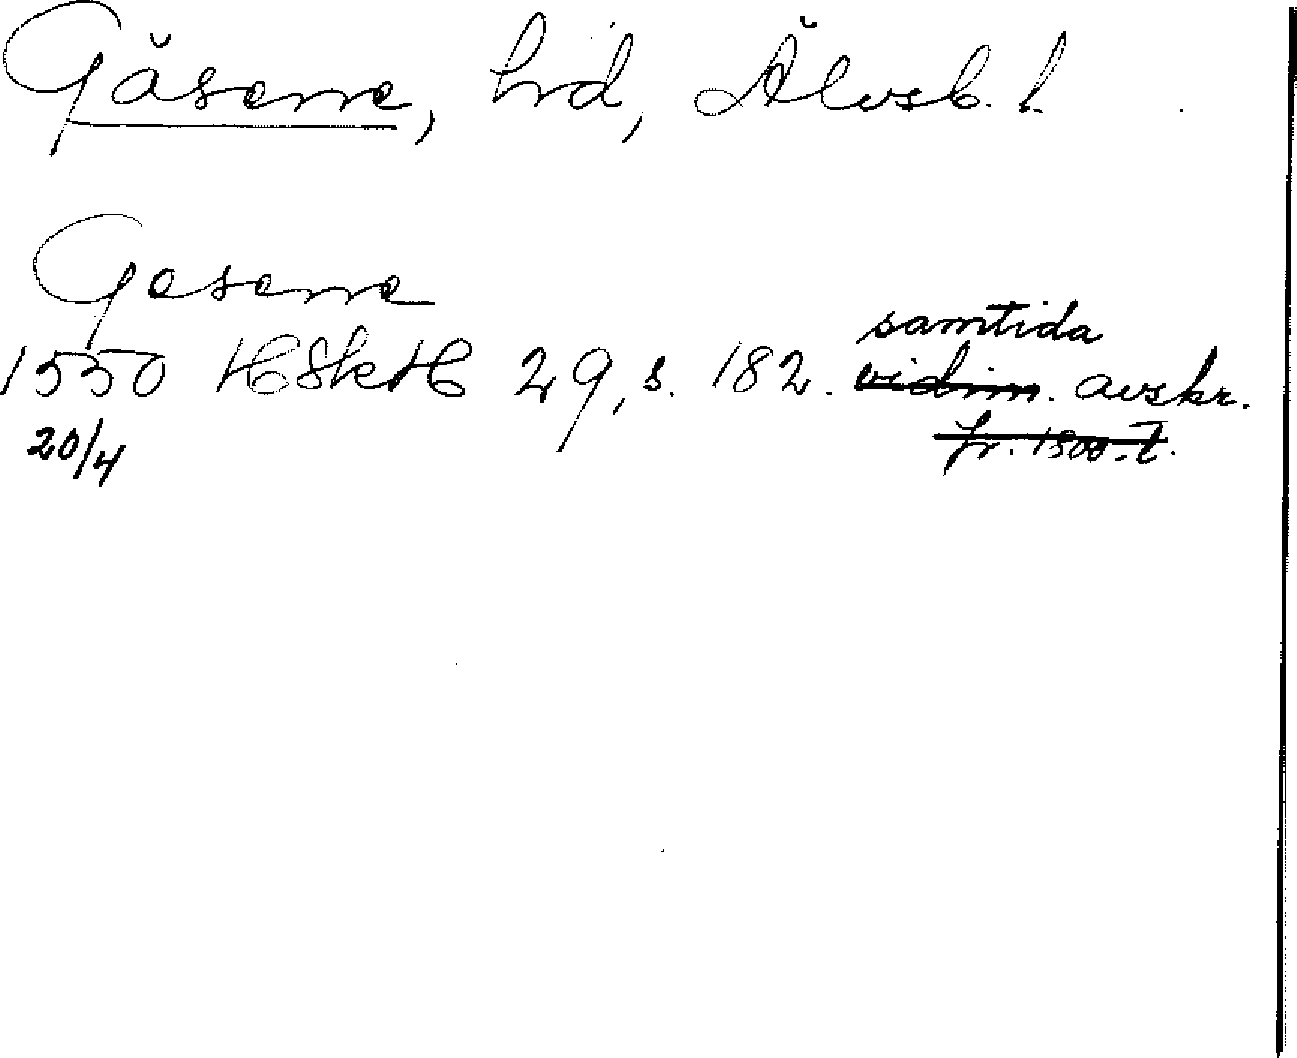 Gåsene, hd, Älvsb. l.
Gesene
samtida
1550 HSkH 29, s. 182. vidim. avskr.
20/4 fr. 1500-t.